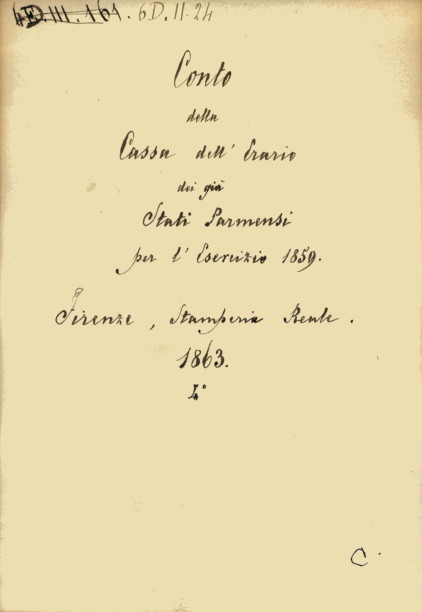 4D.III.161. 6D.II.24
Conto
della
Cassa dell' Erario
dei già
Stati Parmensi
per l' Esercizio 1859.
Firenze, Stamperia Reale.
1863.
4°
C.